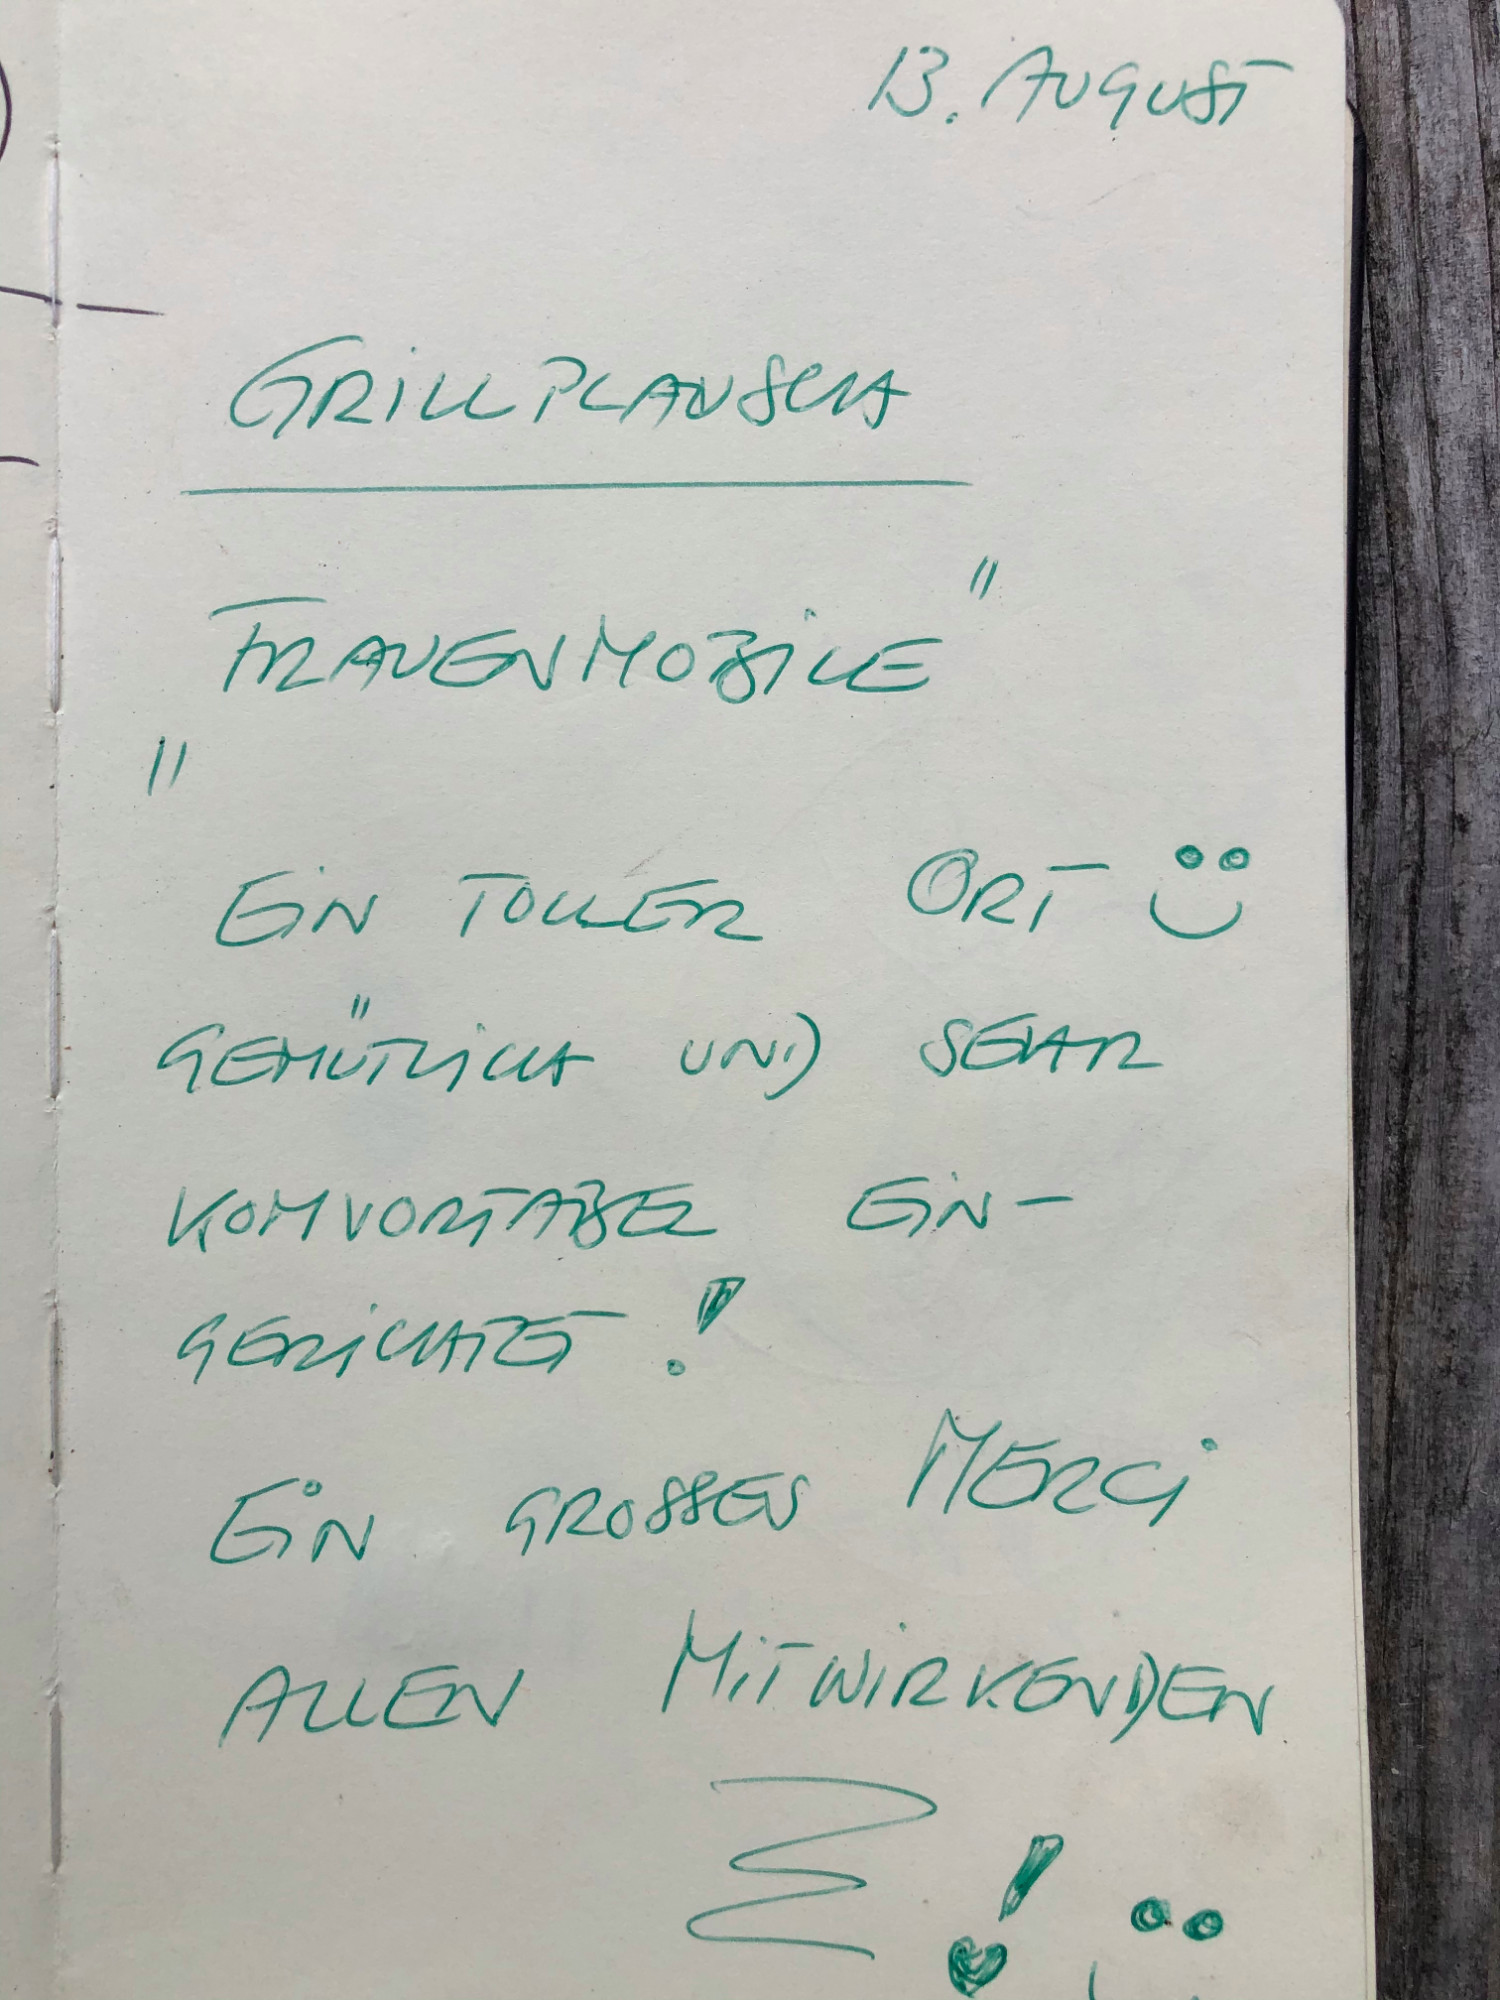 13. AUGUST
GRILLPLAUSCH
FRAUENMOBILE"
"
EIN TOLLER ORT
GEMÜTLICH UND SEHR
KOMVORTABEL EIN-
GERICHTET!
EIN GROSSES MERCI
ALLEN MITWIRKENDEN
!